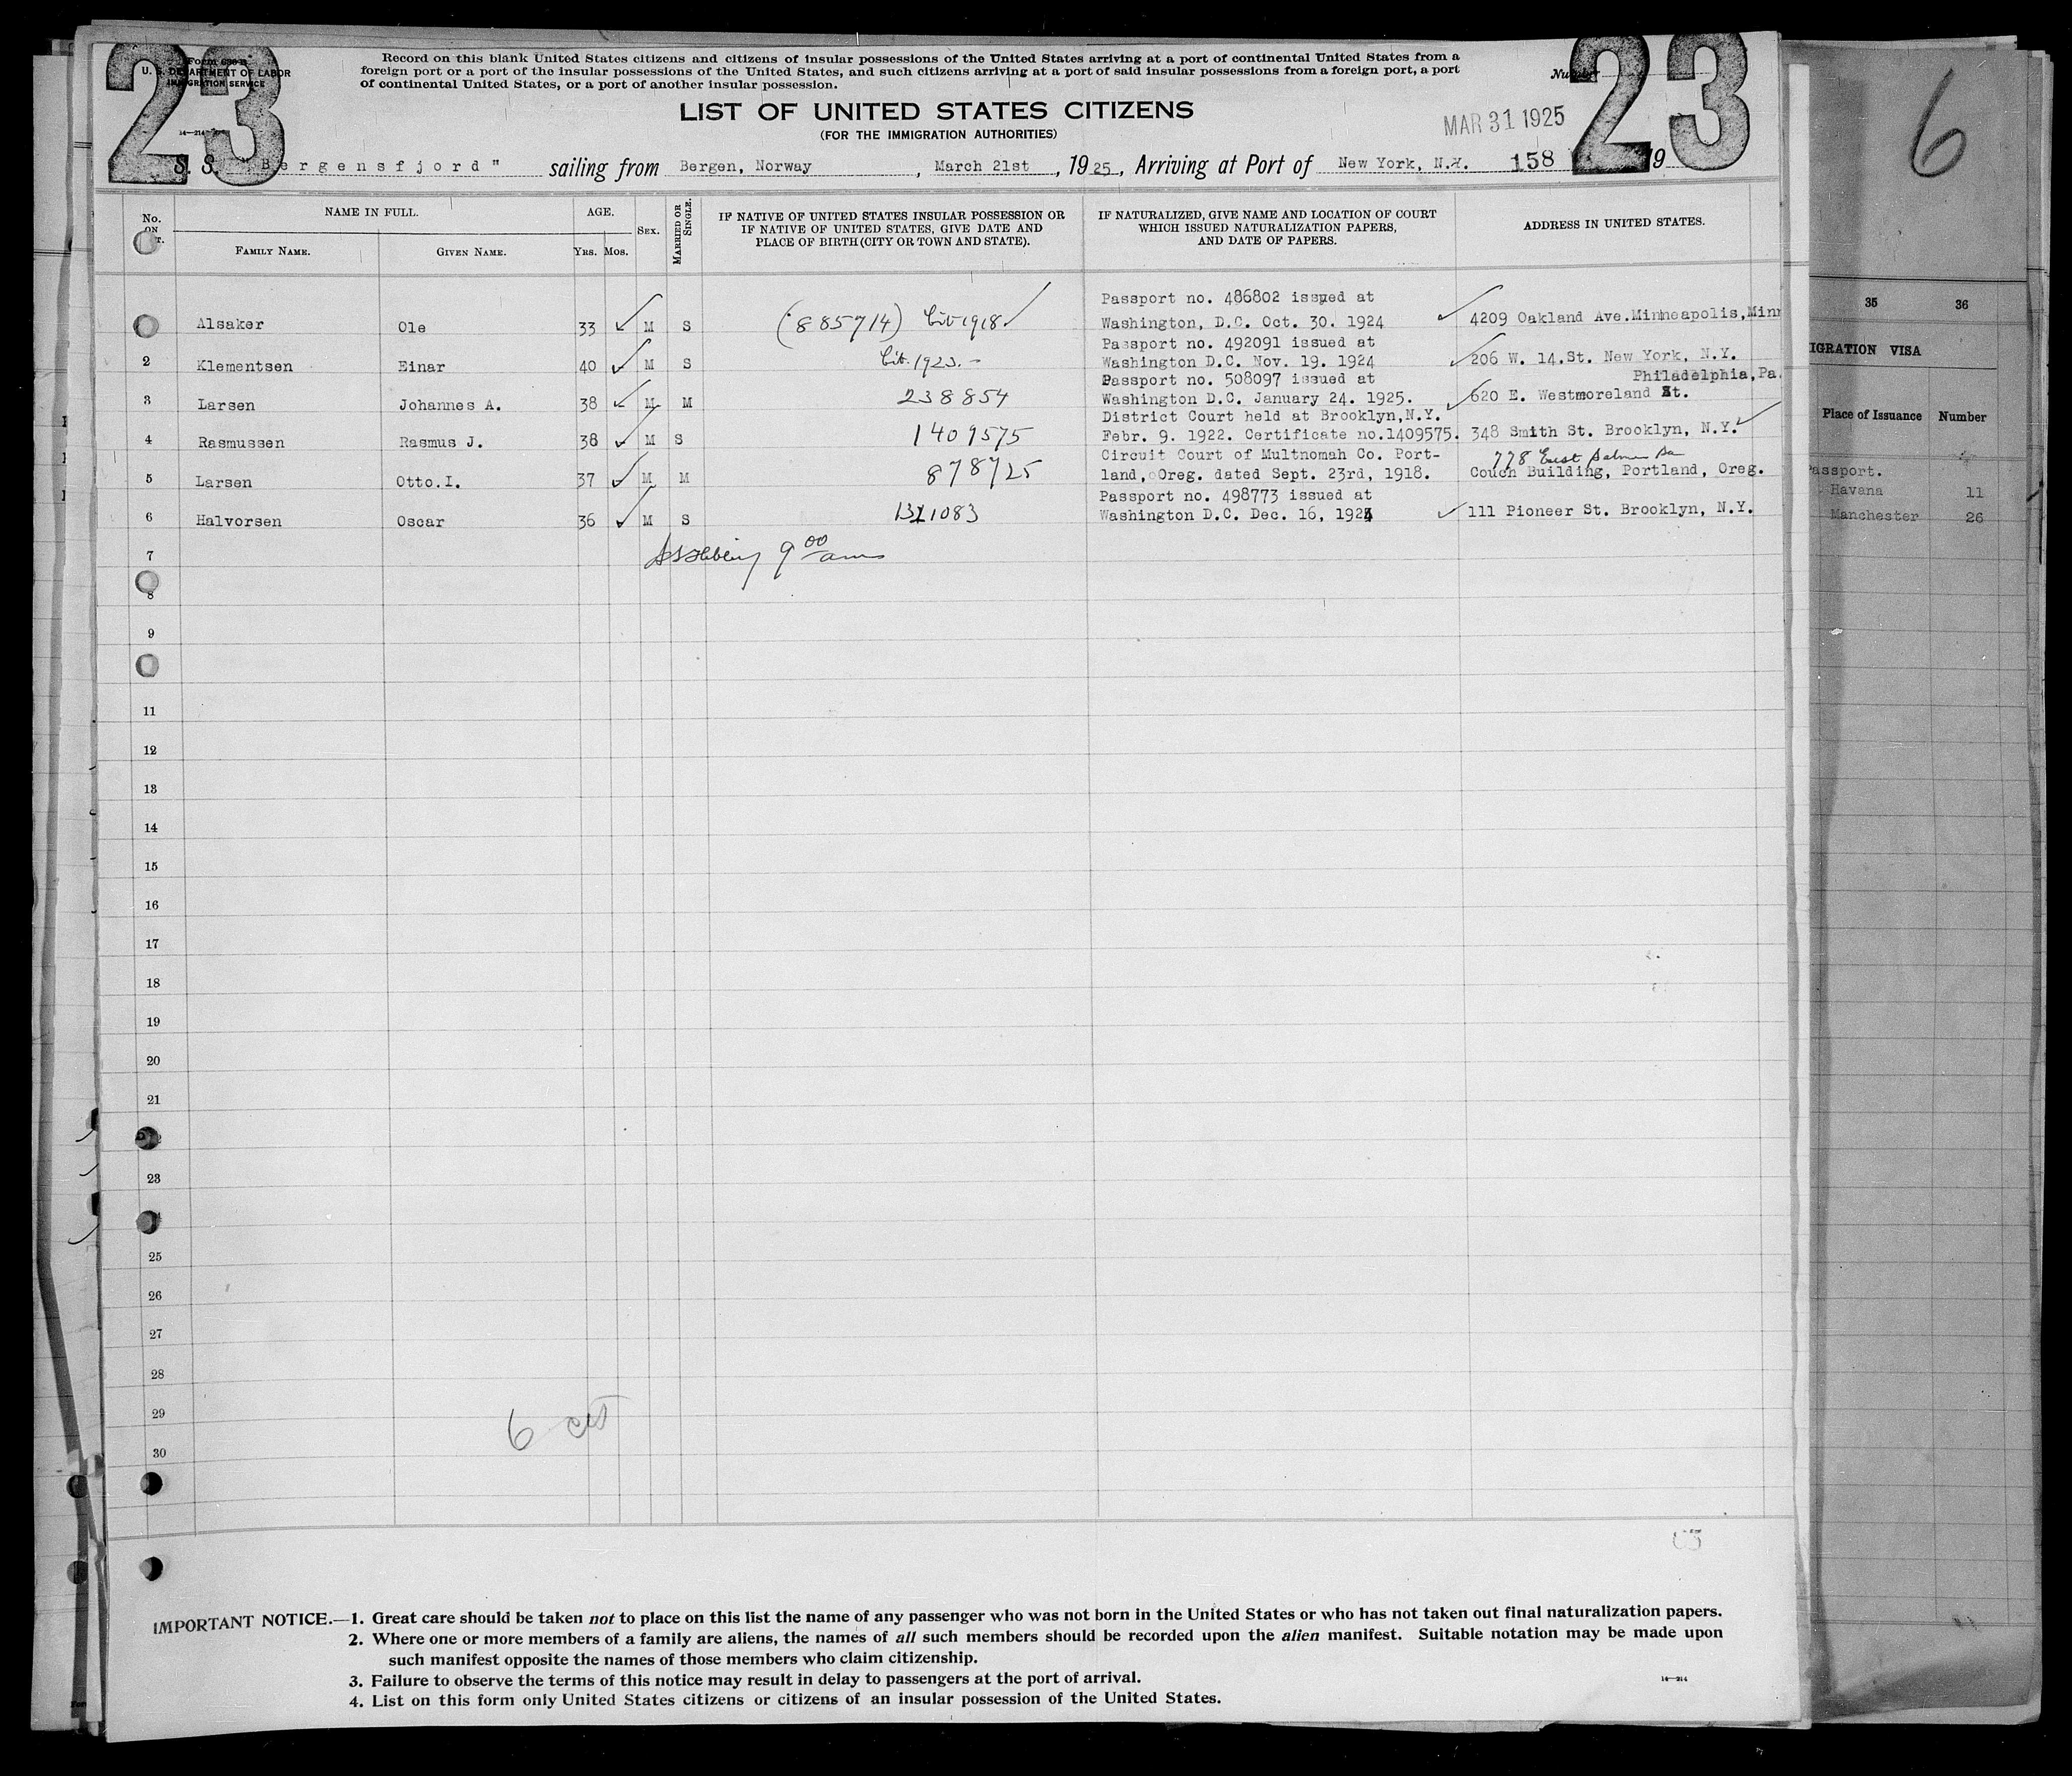 23
23
Form 630 B
U. S. DEPARTMENT OF LABOR
IMMIGRATION SERVICE
14—214
Record on this blank United States citizens and citizens of insular possessions of the United States arriving at a port of continental United States from a
foreign port or a port of the insular possessions of the United States, and such citizens arriving at a port of said insular possessions from a foreign port, a port
of continental United States, or a port of another insular possession.
Number
LIST OF UNITED STATES CITIZENS
(FOR THE IMMIGRATION AUTHORITIES)
MAR 31 1925
S. S. "Bergensfjord" sailing from Bergen, Norway, March 21st, 1925, Arriving at Port of New York, N.Y. 158 19
6
No. ON
NAME IN FULL.
FAMILY NAME.
GIVEN NAME.
AGE.
YRS. MOS.
SEX.
MARRIED OR SINGLE.
IF NATIVE OF UNITED STATES INSULAR POSSESSION OR
IF NATIVE OF UNITED STATES, GIVE DATE AND
PLACE OF BIRTH (CITY OR TOWN AND STATE).
IF NATURALIZED, GIVE NAME AND LOCATION OF COURT
WHICH ISSUED NATURALIZATION PAPERS,
AND DATE OF PAPERS.
ADDRESS IN UNITED STATES.
Passport no. 486802 issued at
Alsaker Ole 33 M S (885714) Cit 1918 Washington, D.C. Oct. 30. 1924 4209 Oakland Ave.Minneapolis,Minn
Passport no. 492091 issued at
2 Klementsen Einar 40 M S Cit. 1923. Washington D.C. Nov. 19. 1924 206 W. 14.St. New York, N.Y.
Passport no. 508097 issued at Philadelphia,Pa.
3 Larsen Johannes A. 38 M M 238854 Washington D.C. January 24. 1925. 620 E. Westmoreland St.
District Court held at Brooklyn,N.Y.
4 Rasmussen Rasmus J. 38 M S 1409575 Febr. 9. 1922. Certificate no.1409575. 348 Smith St. Brooklyn, N.Y.
Circuit Court of Multnomah Co. Port- 778 East Salmon
5 Larsen Otto.I. 37 M M 878725 land, Oreg. dated Sept. 23rd, 1918. Couch Building, Portland, Oreg.
Passport no. 498773 issued at
6 Halvorsen Oscar 36 M S 1311083 Washington D.C. Dec. 16, 1924 111 Pioneer St. Brooklyn, N.Y.
7 9 00 am
8
9
11
12
13
14
15
16
17
18
19
20
21
23
25
26
27
28
29
30
6 cit
35 36
IGRATION VISA
Place of Issuance Number
assport.
Havana 11
Manchester 26
IMPORTANT NOTICE.—1. Great care should be taken not to place on this list the name of any passenger who was not born in the United States or who has not taken out final naturalization papers.
2. Where one or more members of a family are aliens, the names of all such members should be recorded upon the alien manifest. Suitable notation may be made upon
such manifest opposite the names of those members who claim citizenship.
3. Failure to observe the terms of this notice may result in delay to passengers at the port of arrival.
4. List on this form only United States citizens or citizens of an insular possession of the United States.
14—214